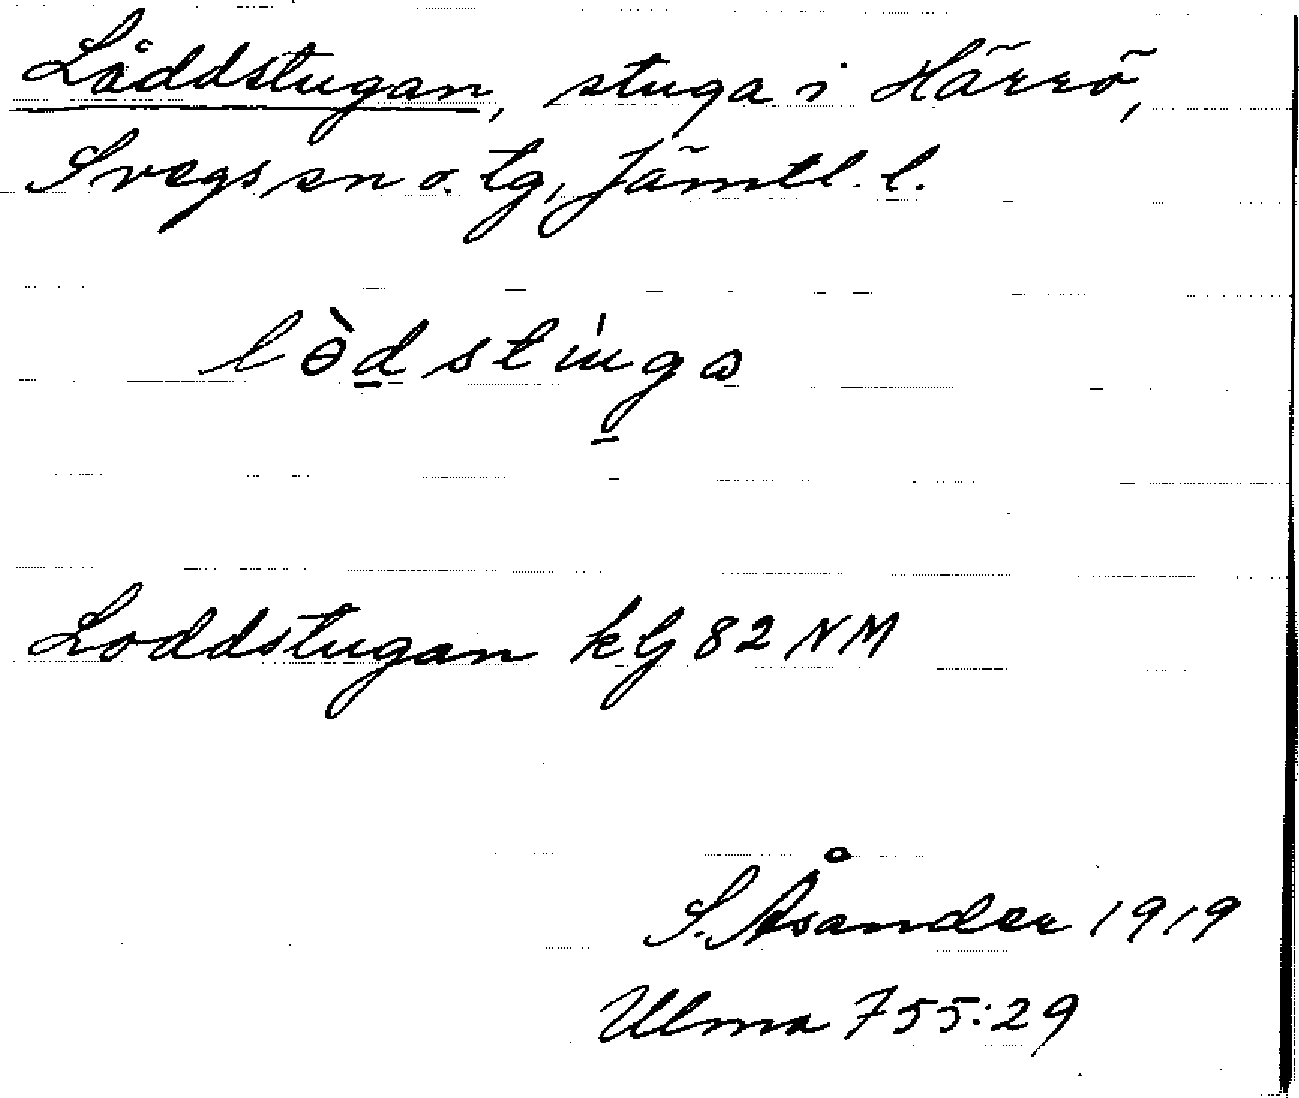 Låddstugan, stuga i Härrö,
Svegs sn o. tg, Jämtl. l.
lɵ̀d̠stúga
Loddstugan kbl 82 NM
S. Åsander 1919
Ulma 755:29